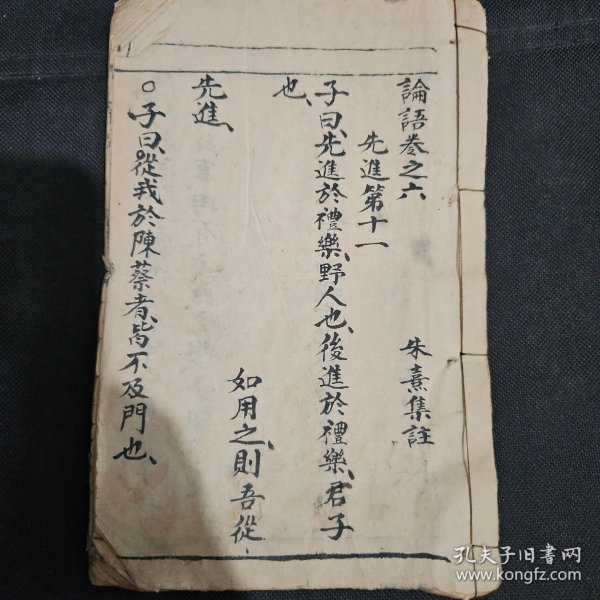 論語卷之六
朱熹集註
先進第十一
子曰、先進於禮樂、野人也、後進於禮樂、君子
也、
如用之、則吾從
先進、
○子曰、從我於陳蔡者、皆不及門也、
孔夫子旧书网
www.kongfz.com